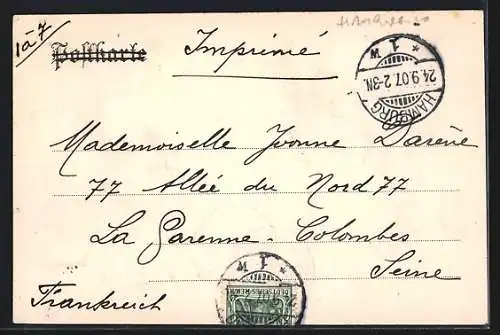 1 à 7
Postkarte
Imprimé
HAMBURG
24.9.07. 2-3N.
* 1 w
Mademoiselle Yvonne Darène
77 Allée du Nord 77
La Garenne-Colombes
Seine
Frankreich
* 1 w
DEUTSCHES REICH